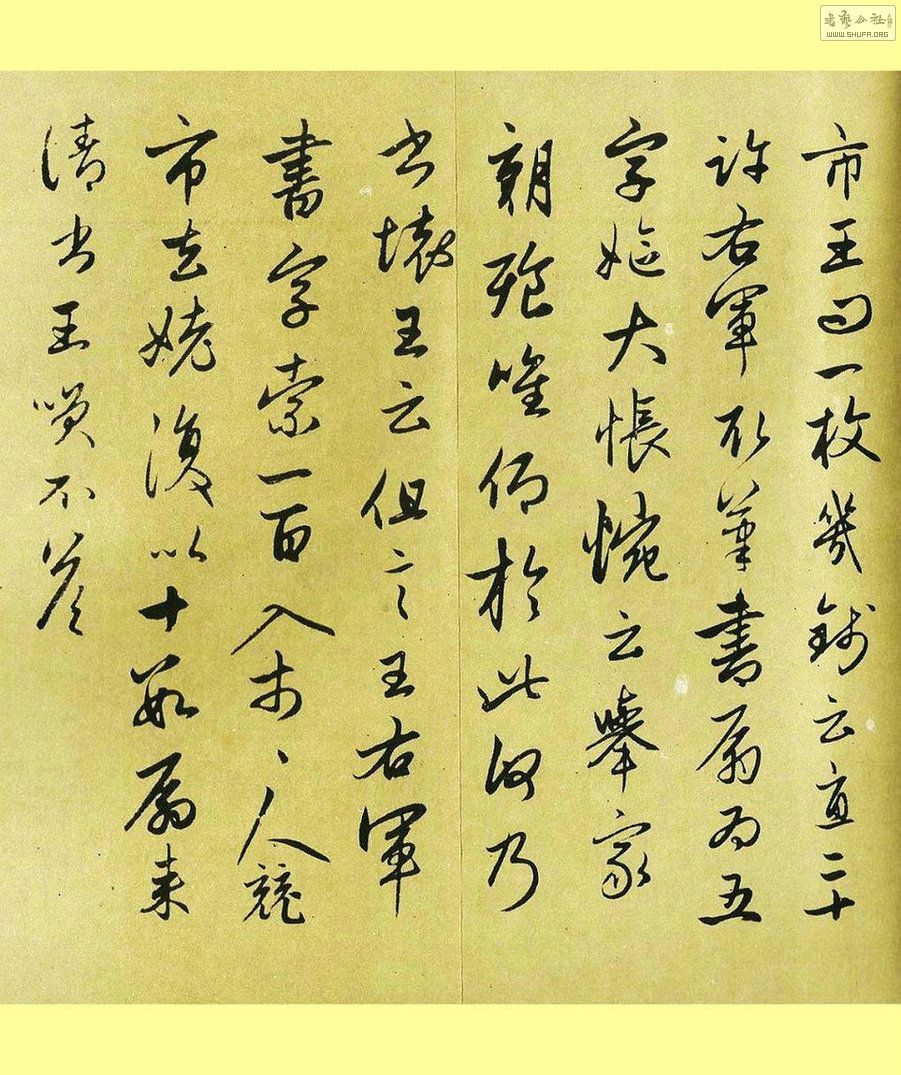 市王曰一枚幾錢云直二十
許右軍取筆書扇為五
字嫗大悵惋云舉家
朝飧唯仰於此何乃
書壞王云但言王右軍
書字索一百入市、人競
市去姥復以十數扇来
請書王笑不答
書藝公社
WWW.SHUFA.ORG